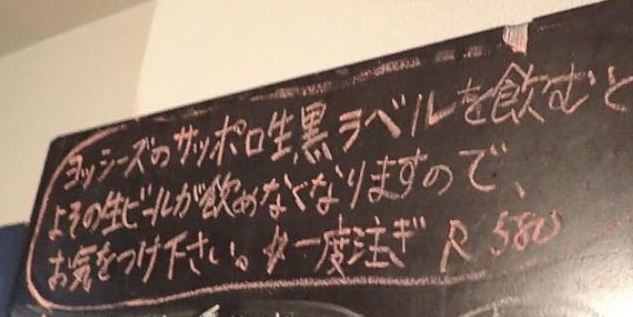 ヨッシーズのサッポロ生黒ラベルを飲むと
よその生ビールが飲めなくなりますので、
お気をつけ下さい。 一度注ぎ R 580